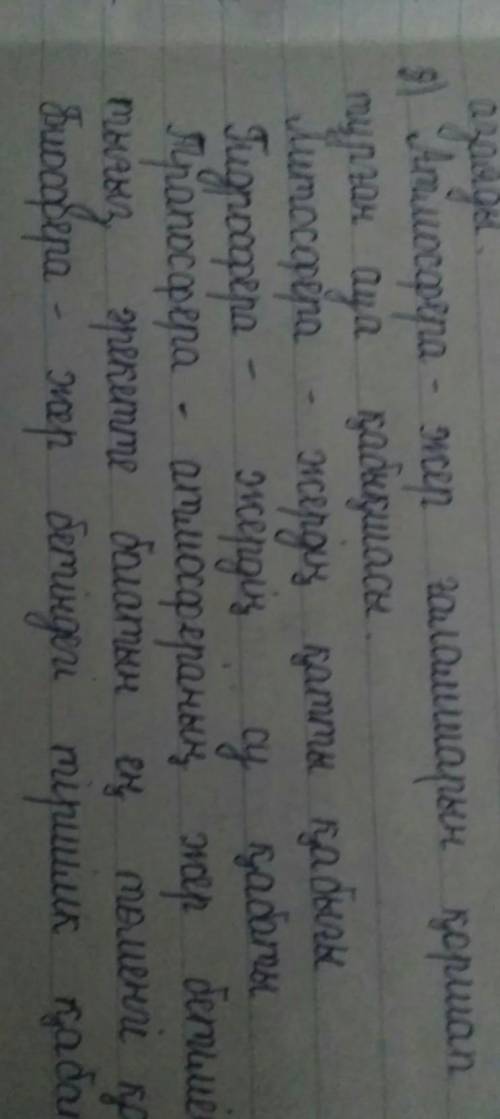 азаяды.
8) Атмосфера - жер ғаламшарын қоршап
тұрған ауа қабықшасы.
Литосфера - жердің қатты қабығы
Гидросфера - жердің су қабаты
Тропосфера - атмосфераның жер бетіне
әрекетте болатын ең төменгі қа
Биосфера - жер бетіндегі тіршілік қабат